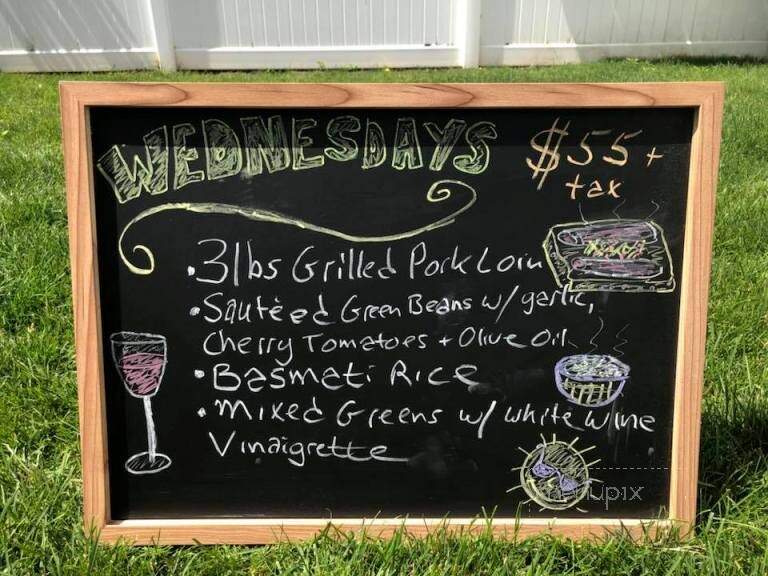 WEDNESDAYS
$55 +
tax
• 3lbs Grilled Pork Loin
• Sautèed Green Beans w/ garlic,
Cherry Tomatoes + Olive Oil
• Basmati Rice
• Mixed Greens w/ white wine
Vinaigrette
menupix